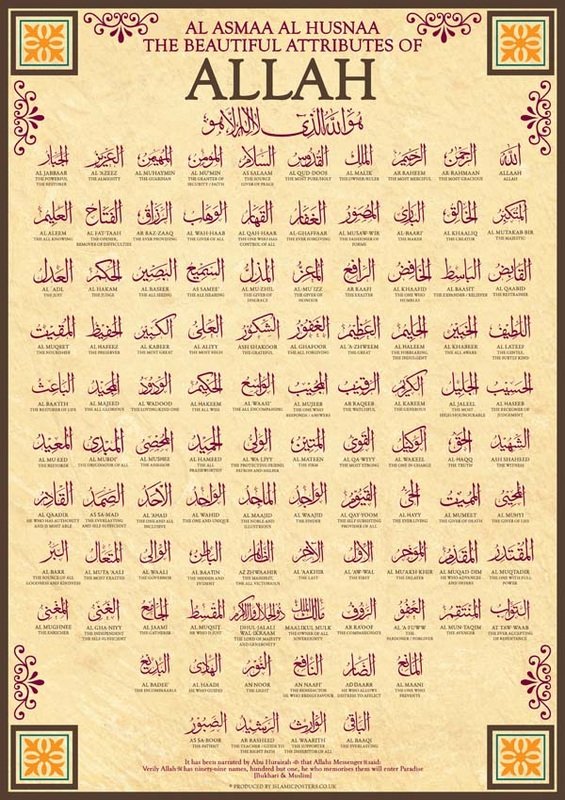 AL ASMAA AL HUSNAA
THE BEAUTIFUL ATTRIBUTES OF
ALLAH
هو الله الذي لا اله الا هو
الجبار العزيز المهيمن المؤمن السلام القدوس الملك الرحيم الرحمن الله
AL JABBAAR AL 'AZEEZ AL MUHAYMIN AL MU'MIN AS SALAAM AL QUD-DOOS AL MALIK AR RAHEEM AR RAHMAAN ALLAAH
THE POWERFUL, THE RESTORER THE ALMIGHTY THE GUARDIAN THE GRANTER OF SECURITY / FAITH THE SOURCE GIVER OF PEACE THE MOST PURE/HOLY THE OWNER/RULER THE MOST MERCIFUL THE MOST GRACIOUS ALLAH
العليم الفتاح الرزاق الوهاب القهار الغفار المصور البارئ الخالق المتكبر
AL ALEEM AL FAT-TAAH AR RAZ-ZAAQ AL WAH-HAAB AL QAH HAAR AL-GHAFFAAR AL MUSAW-WIR AL-BAARI' AL KHAALIQ AL MUTAKAB BIR
THE ALL KNOWING THE OPENER, REMOVER OF DIFFICULTIES THE EVER PROVIDING THE GIVER OF ALL THE ONE WHO HAS CONTROL OF ALL THE EVER FORGIVING THE FASHIONER OF FORMS THE MAKER THE CREATOR THE MAJESTIC
العدل الحكم البصير السميع المذل المعز الرافع الخافض الباسط القابض
AL 'ADL AL HAKAM AL BASEER AS SAMEE' AL MU-ZHIL AL-MU'IZZ AR RAAFI AL KHAAFID AL BAASIT AL QAABID
THE JUST THE JUDGE THE ALL SEEING THE ALL-HEARING THE GIVER OF DISGRACE THE GIVER OF HONOUR THE EXALTER THE ONE WHO HUMBLES THE EXPANDER / RELIEVER THE RESTRAINER
المقيت الحفيظ الكبير العلي الشكور الغفور العظيم الحليم الخبير اللطيف
AL MUQEET AL HAFEEZ AL KABEER AL ALIYY ASH SHAKOOR AL GHAFOOR AL 'AZHWEEM AL HALEEM AL KHABEER AL LATEEF
THE NOURISHER THE PRESERVER THE MOST GREAT THE MOST HIGH THE GRATEFUL THE ALL FORGIVING THE GREAT THE FORBEARING, THE INDULGENT THE ALL AWARE THE GENTLE, THE SUBTLE KIND
الباعث المجيد الودود الحكيم الواسع المجيب الرقيب الكريم الجليل الحسيب
AL BAAITH AL MAJEED AL WADOOD AL HAKEEM AL WAASI' AL MUJEEB AR RAQEEB AL KAREEM AL JALEEL AL HASEEB
THE RESTORER OF LIFE THE ALL GLORIOUS THE LOVING-KIND ONE THE ALL WISE THE ALL ENCOMPASSING THE ONE WHO RESPONDS / ANSWERS THE WATCHFUL THE GENEROUS THE MOST HIGH/HONOURABLE THE BECKONER OF JUDGEMENT
المعيد المبدئ المحصي الحميد الولي المتين القوي الوكيل الحق الشهيد
AL MU-EED AL MUBDI' AL MUHSEE AL HAMEED AL WA-LIYY AL MATEEN AL QA-WIYY AL WAKEEL AL HAQQ ASH SHAHEED
THE RESTORER THE ORIGINATOR OF ALL THE ASSESSOR THE ALL PRAISEWORTHY THE PROTECTING FRIEND, PATRON AND HELPER THE FIRM THE MOST STRONG THE ONE IN CHARGE THE TRUTH THE WITNESS
القادر الصمد الاحد الواحد الماجد الواجد القيوم الحي المميت المحيي
AL QAADIR AS SA-MAD AL 'AHAD AL WAHID AL MAAJID AL WAAJID AL QAY YOOM AL HAYY AL MUMEET AL MUHYI
HE WHO HAS AUTHORITY AND IS MOST ABLE THE EVERLASTING AND SELF SUFFICIENT THE ONE AND ALL INCLUSIVE THE ONE AND UNIQUE THE NOBLE AND ILLUSTRIOUS THE FINDER THE SELF SUBSISTING PROVIDER OF ALL THE EVER LIVING THE GIVER OF DEATH THE GIVER OF LIFE
البر المتعال الوالي الباطن الظاهر الآخر الأول المؤخر المقدم المقتدر
AL BARR AL MUTA'AALI AL WAALI AL BAATIN AZ ZHWAAHIR AL 'AAKHIR AL 'AW-WAL AL MU'AKH KHIR AL MUQAD-DIM AL MUQTADIR
THE SOURCE OF ALL GOODNESS AND KINDNESS THE MOST EXALTED THE GOVERNOR THE HIDDEN AND INTIMATE THE MANIFEST, THE ALL VICTORIOUS THE LAST THE FIRST THE DELAYER HE WHO ADVANCES AND OFFERS THE ONE WITH FULL POWER
المغني الغني الجامع المقسط ذو الجلال والاكرام مالك الملك الرءوف العفو المنتقم التواب
AL MUGHNEE AL GHA-NIYY AL JAAMI AL MUQSIT DHUL-JALALI WAL-IKRAAM MAALIKUL MULK AR RA'OOF AL 'A FUWW AL MUN-TAQIM AT TAW-WAAB
THE ENRICHER THE INDEPENDENT THE SELF-SUFFICIENT THE GATHERER HE WHO IS JUST THE LORD OF MAJESTY AND GENEROSITY THE OWNER OF ALL SOVEREIGNTY THE COMPASSIONATE THE PARDONER / FORGIVER THE AVENGER THE EVER ACCEPTING OF REPENTANCE
البديع الهادي النور النافع الضار المانع
AL BADEE' AL HAADI AN NOOR AN NAAFI' AD DAARR AL MAANI
THE INCOMPARABLE HE WHO GUIDES THE LIGHT THE BENEFACTOR HE WHO BRINGS FAVOUR HE WHO ALLOWS DISTRESS TO AFFLICT THE ONE WHO PREVENTS
الصبور الرشيد الوارث الباقي
AS SA-BOOR AR RASHEED AL WAARITH AL BAAQI
THE PATIENT THE TEACHER / GUIDE TO THE RIGHT PATH THE SUPPORTER THE INHERITER OF ALL THE EVERLASTING
It has been narrated by Abu Hurairah that Allahs Messenger said:
Verily Allah has ninety-nine names, hundred but one, he who memorises them will enter Paradise
[Bukhari & Muslim]
* PRODUCED BY ISLAMICPOSTERS.CO.UK